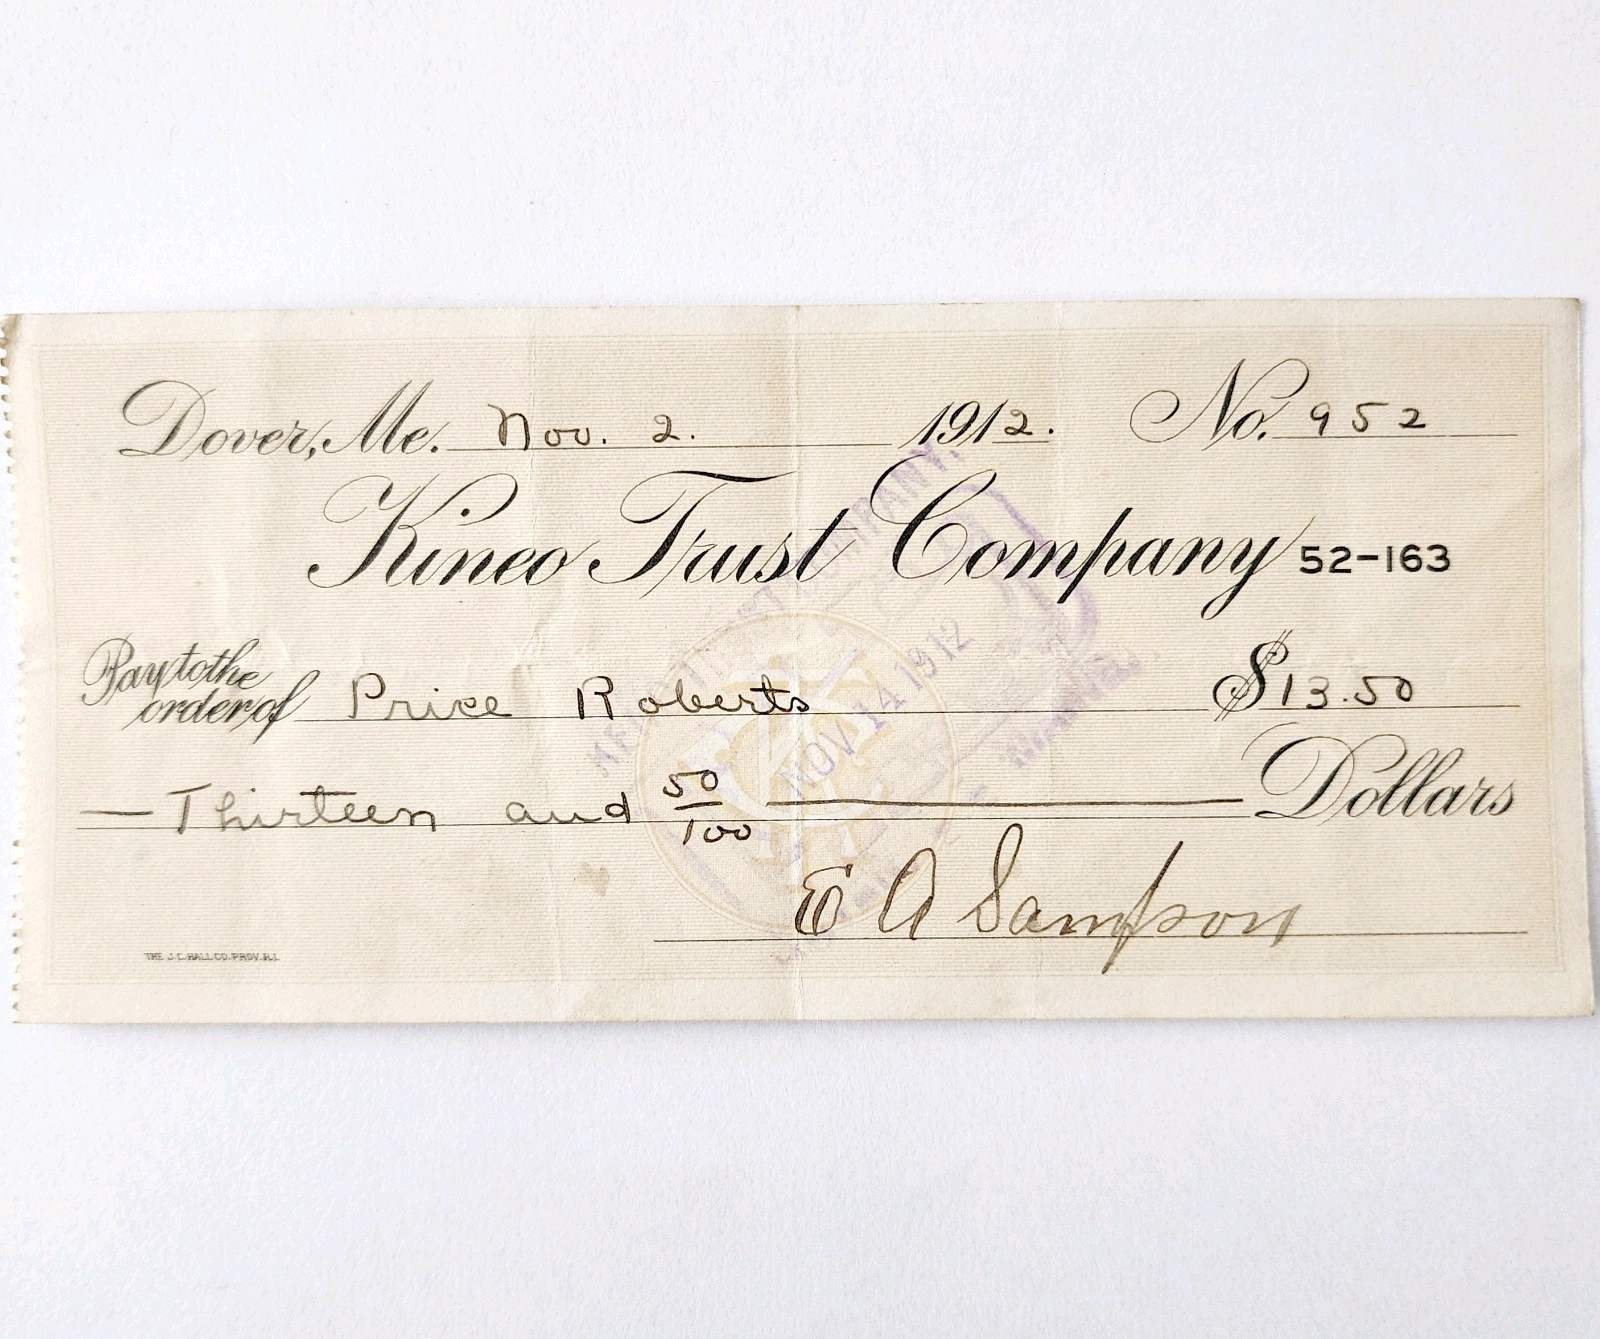 Dover, Me. Nov. 2. 1912. No. 952
Kineo Trust Company 52-163
Pay to the
order of Price Roberts $13.50
Thirteen and 50/100 Dollars
E A Sampson
THE J.C. HALL CO. PROV. R.I.
NOV 14 1912